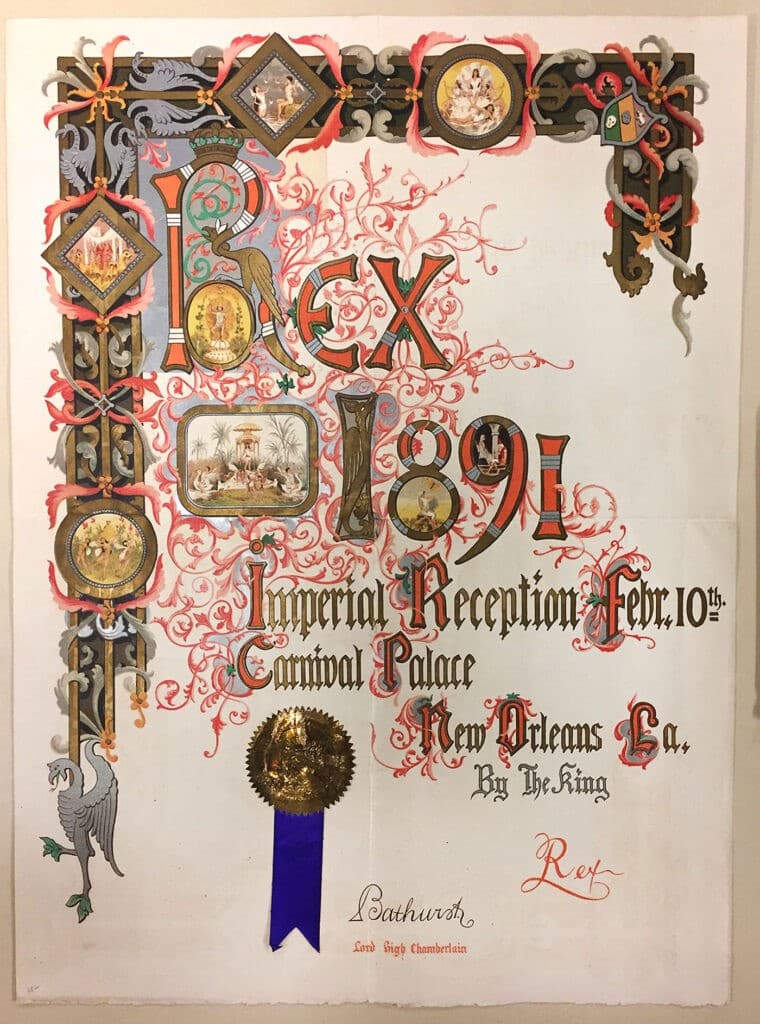 Rex
1891
Imperial Reception Febr. 10th.
Carnival Palace
New Orleans La.
By The King
Rex
Bathurst
Lord High Chamberlain